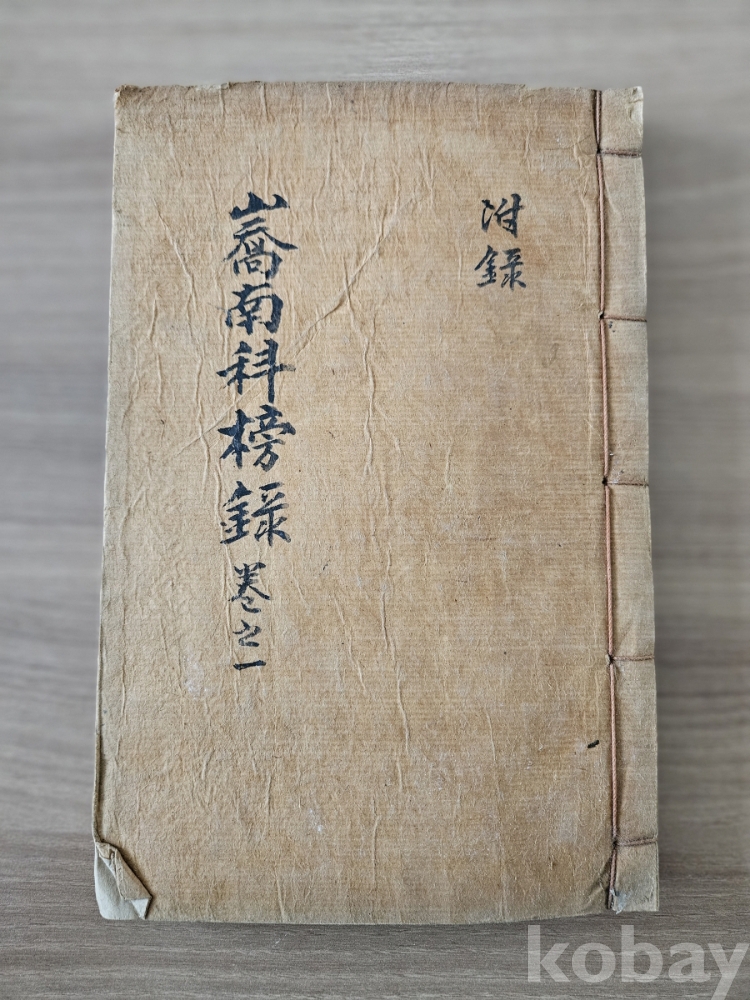 附錄
嶠南科榜錄 卷之一
kobay